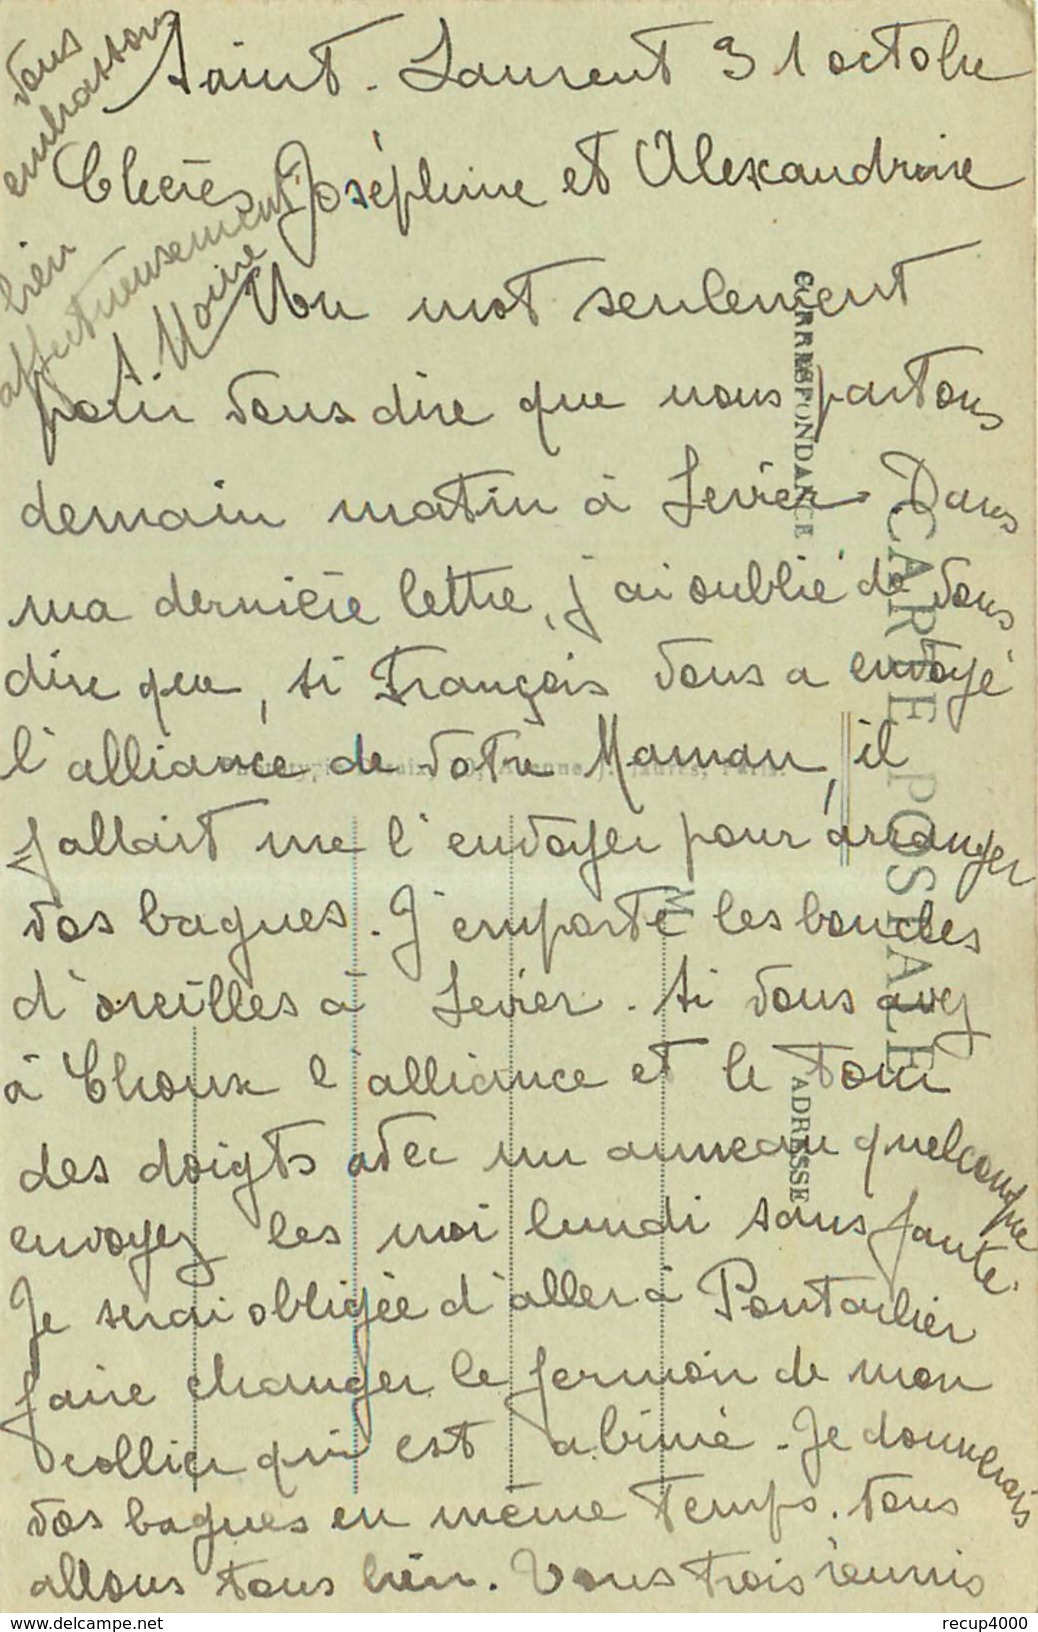 Saint-Laurent 31 octobre
Chères Joséphine et Alexandrine
Un mot seulement
pour vous dire que nous partons
demain matin à Levier. Dans
ma dernière lettre, j'ai oublié de vous
dire que, si François vous a envoyé
l'alliance de votre Maman, il
fallait me l'envoyer pour arranger
vos bagues. J'emporte les boucles
d'oreilles à Levier. Si vous avez
à Choux l'alliance et le tour
des doigts avec un anneau quelconque
envoyez les moi lundi sans faute.
Je serai obligée d'aller à Pontarlier
faire changer le fermoir de mon
collier qui est abimé. Je donnerais
vos bagues en même temps. Nous
allons tous bien. Vous trois réunis
vous
embrassons
bien
affectueusement
CORRESPONDANCE
CARTE POSTALE
M
ADRESSE
recup4000